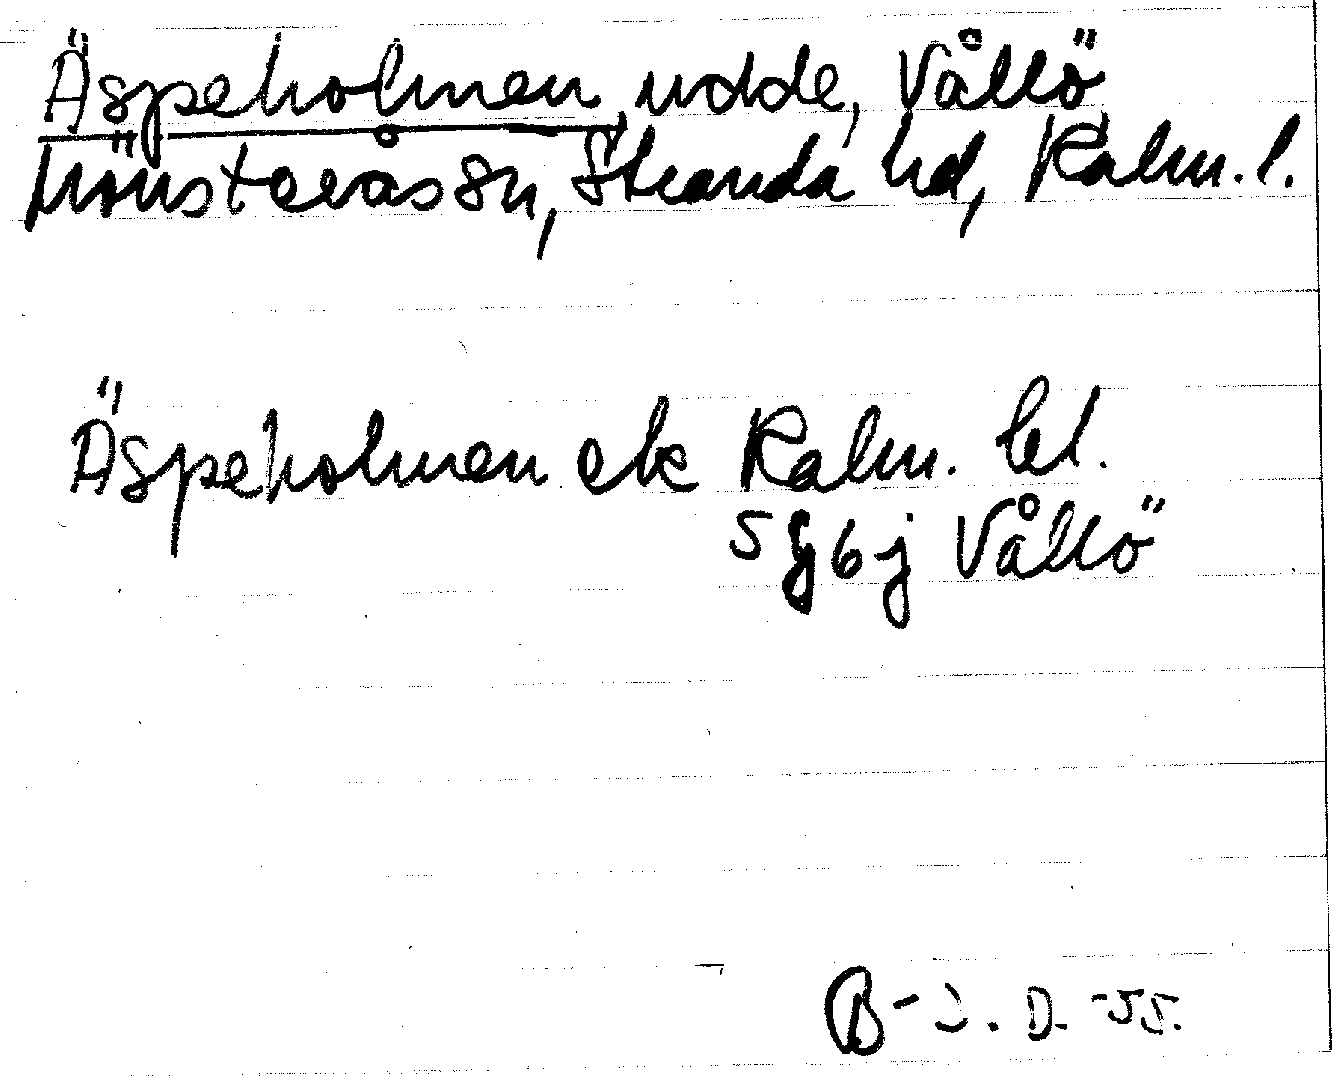 Äspeholmen, udde, Vållö
Mönsterås sn, Stranda hd, Kalm. l.
Äspeholmen ek Kalm. bl.
5 g 6 j Vållö
B-J. D. -55.